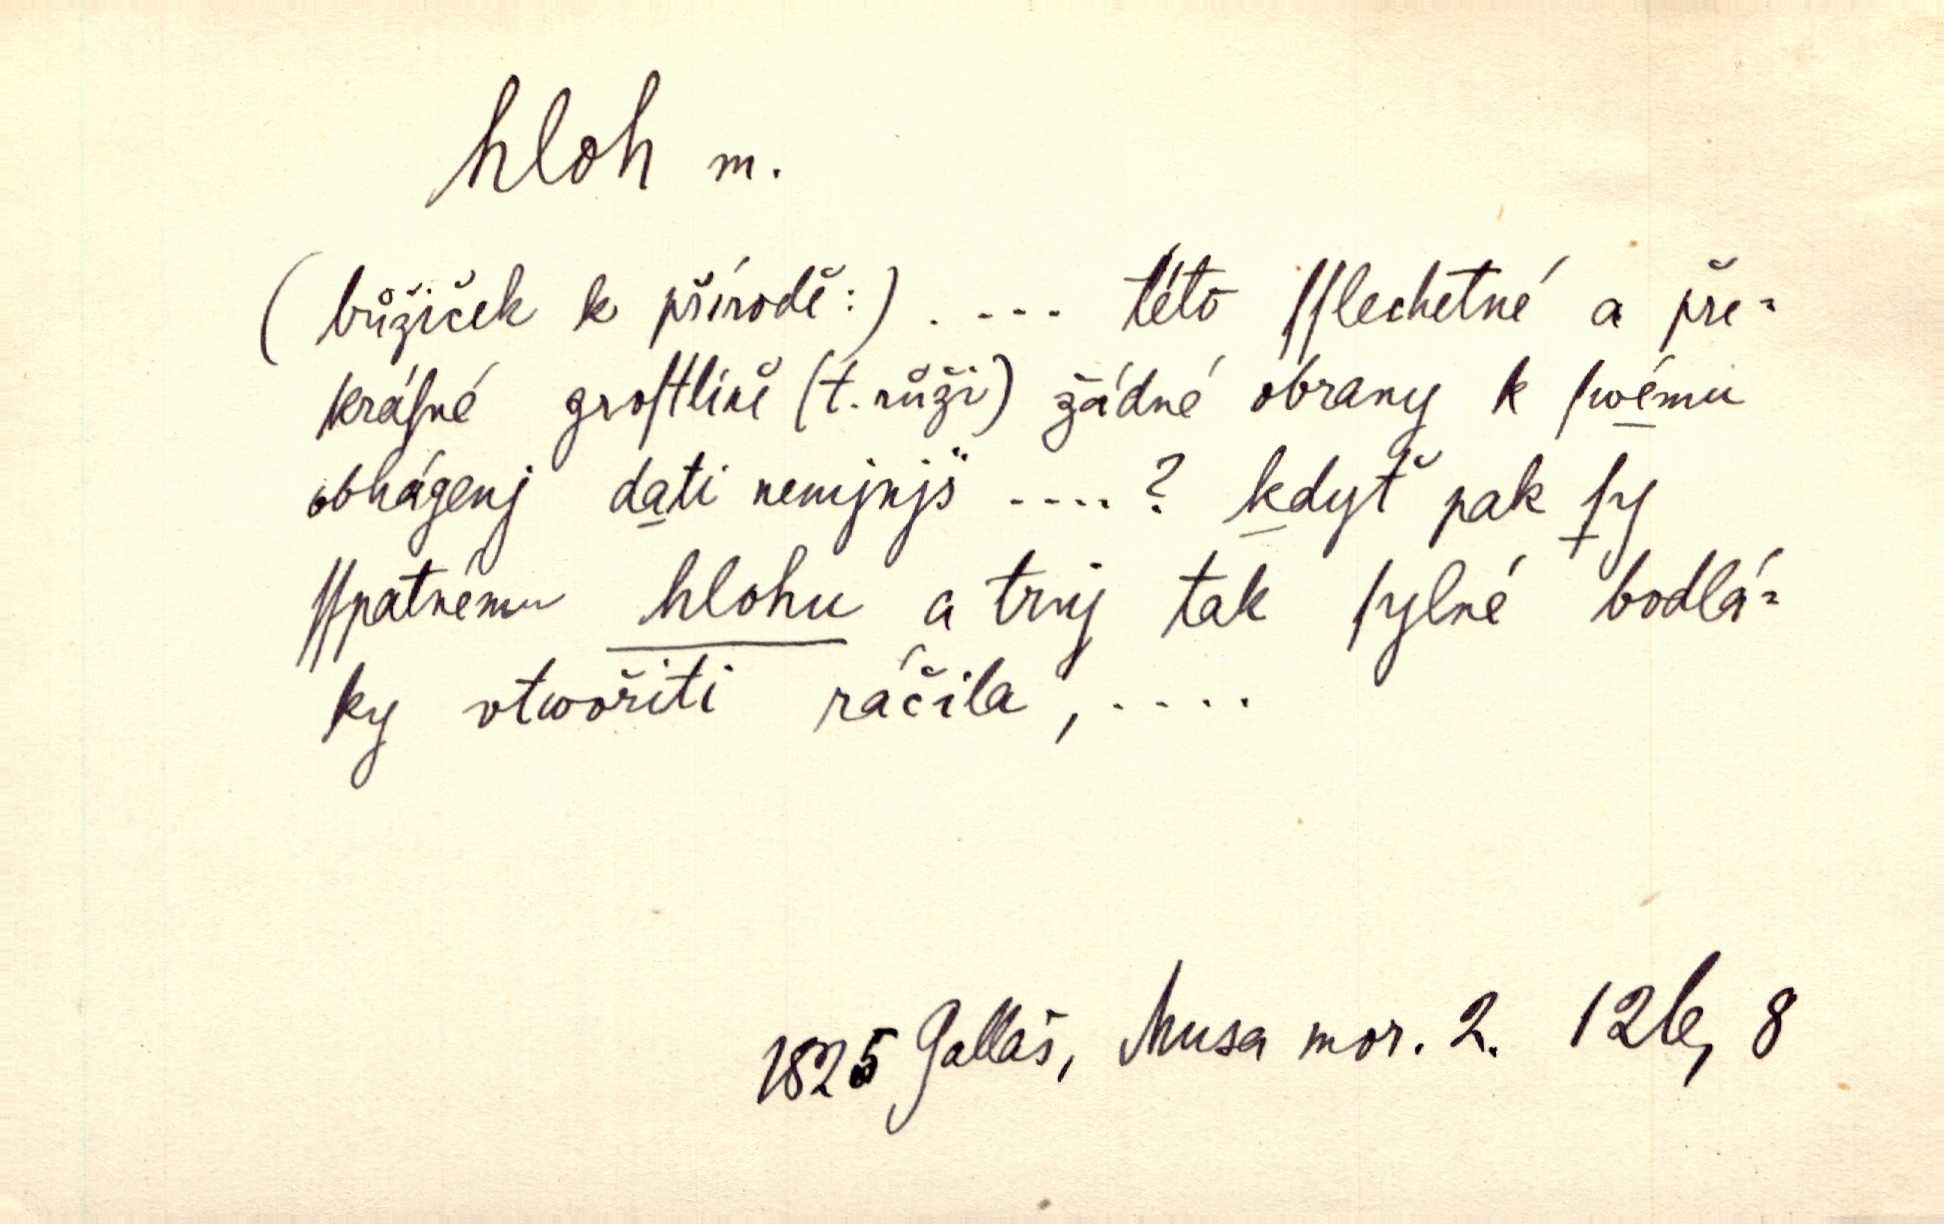 hloh m.
(bůžiček k přírodě:) . - - - této ſſlechetné a pře=
kráſné groſtlině (t. růži) žádné obrany k ſwému
obhágenj dati nemjnjš ....? kdyť pak ſy
ſſpatnému hlohu a trnj tak ſylné bodlá=
ky vtwořiti ráčila, ....
1825 Gallaš, Musa mor. 2. 126, 8